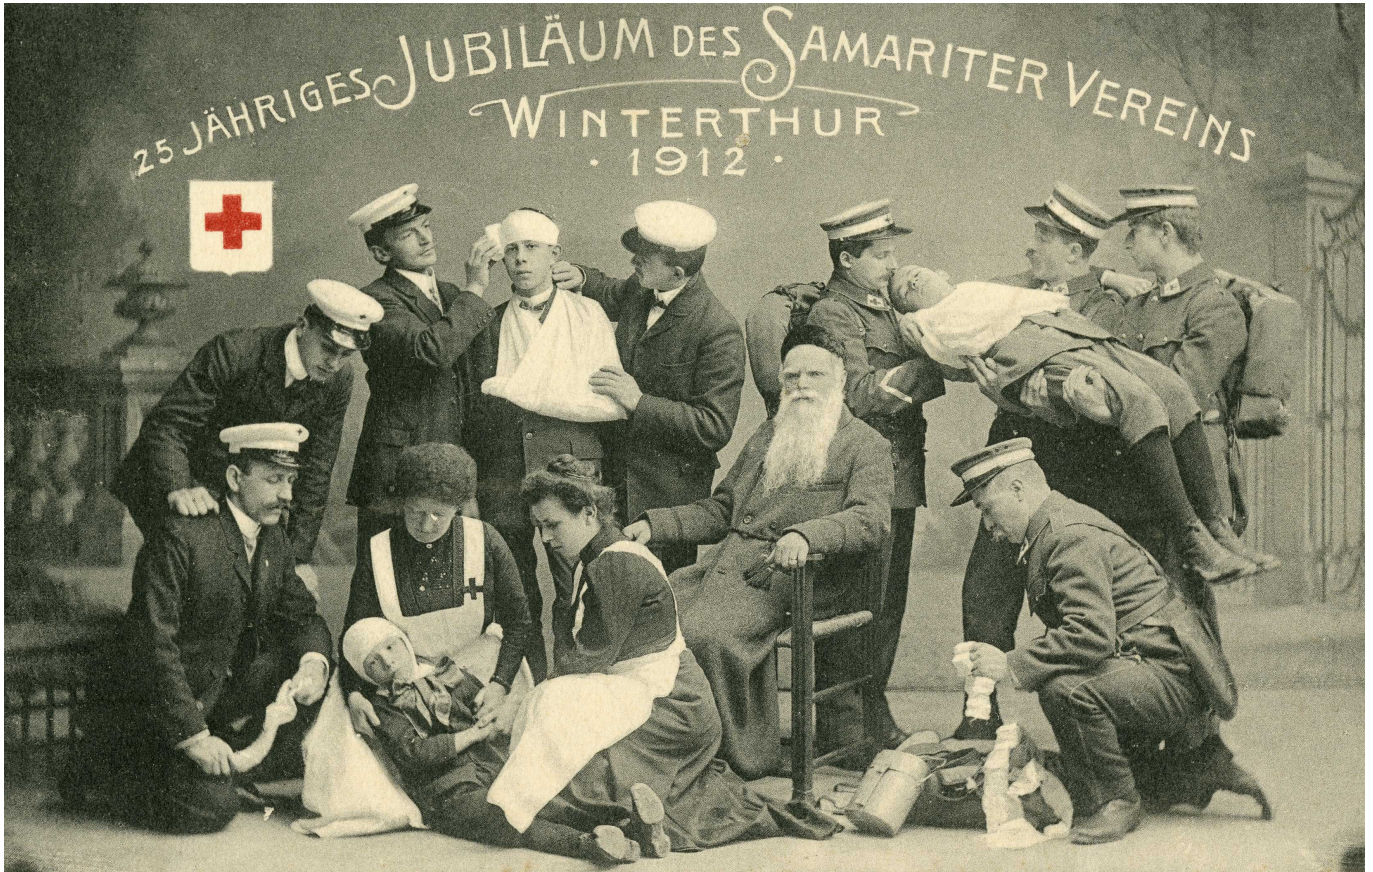 25 JÄHRIGES JUBILÄUM DES SAMARITER VEREINS
WINTERTHUR
· 1912 ·